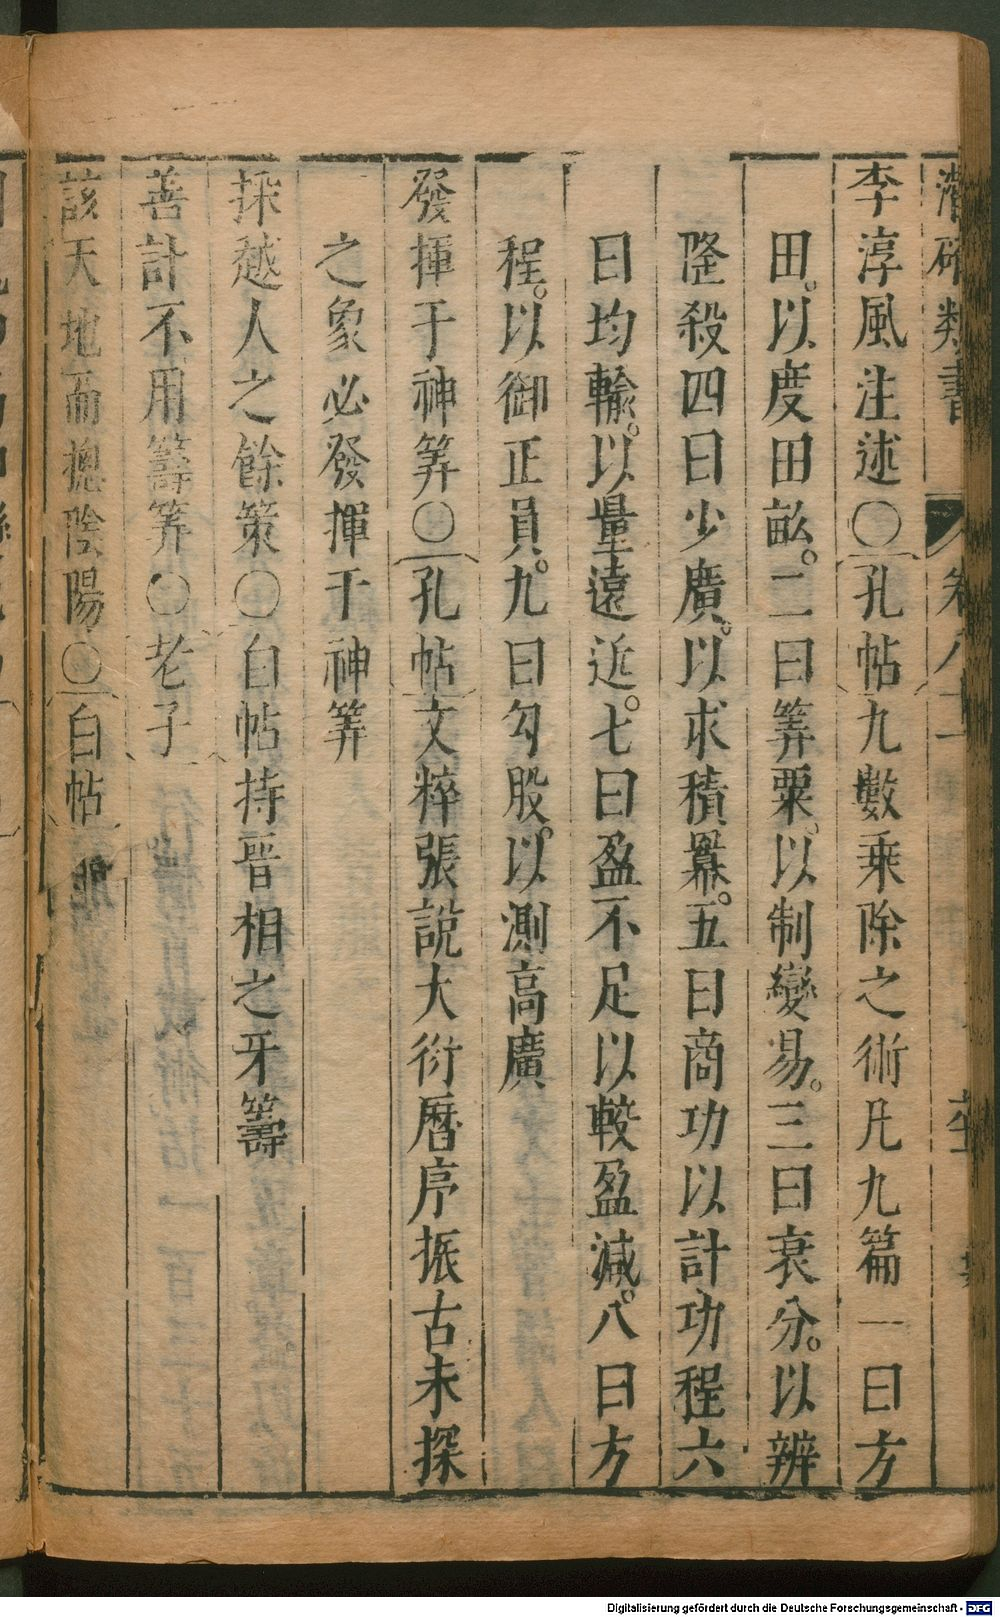 潛確類書 卷八十一
李淳風注述〇孔帖九數乘除之術凡九篇一曰方
田。以度田畝。二曰筭粟。以制變易。三曰衰分。以辨
隆殺四曰少廣。以求積羃。五曰商功以計功程六
曰均輸。以量遠近。七曰盈不足以較盈減。八曰方
程。以御正員。九曰勾股。以測高廣
發揮于神筭〇孔帖文粹張說大衍曆序振古未探
之象必發揮于神筭
探越人之餘策〇白帖持晋相之牙籌
善計不用籌筭〇老子
該天地而揔陰陽〇白帖
Digitalisierung gefördert durch die Deutsche Forschungsgemeinschaft - DFG